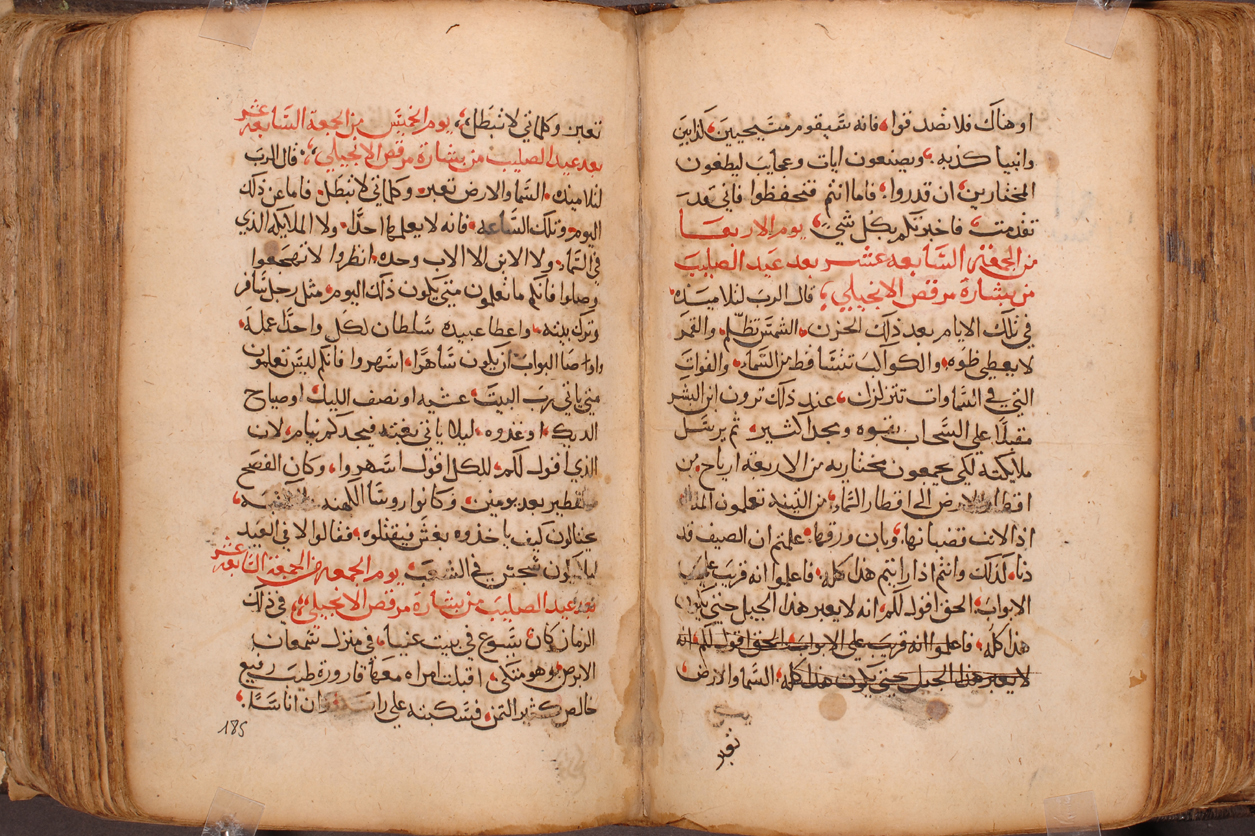 او هناك فلا تصدقوا، فانه سيقوم مسيحيين كذابين
وانبيا كذبه. ويصنعون ايات وعجايب ليطغون
المختارين ان قدروا، فاما انتم فتحفظوا فاني قد
تقدمت فاخبرتكم بكل شي، يوم الاربعا
من الجمعة السابعه عشر بعد عيد الصليب
من بشارة مرقص الانجيلي، قال الرب لتلاميذه
في تلك الايام بعد ذلك الحزن، الشمس تظلم، والقمر
لا يعطي ضوه، والكواكب تتساقط من السماء، والقوات
التي في السماوات تتزلزل، عند ذلك ترون ابن البشر
مقبلا علي السحاب بقوه ومجدا كثير، ثم يرسل
ملايكته لكي يجمعون مختاريه من الاربعة ارياح من
الارض الى اقطار السماء، من التينه تعلمون
اذا لانت قضبانها، وبان ورقها، علمتم ان الصيف قد
دنا، لذلك وانتم اذا رايتم هذا كله، فاعلموا انه قريب علي
الابواب، الحق اقول لكم، انه لا يعبر هذا الجيل حتي يكون
هذا كله، فاعلموا انه قريب علي الابواب، الحق اقول لكم، انه
لا يعبر هذا الجيل حتي يكون هذا كله، السما والارض
تعبر
تعبرن وكلماتي لا تبطل، يوم الخميس من الجمعة السابعه عشر
بعد عيد الصليب من بشارة مرقص الانجيلي، قال الرب
لتلاميذه، السما والارض تعبر، وكلماتي لا تبطل، فاما عن ذلك
اليوم وتلك الساعه، فانه لا يعلمها احد، ولا الملايكه الذي
في السماء، ولا الابن الا الاب وحده، انظروا لا تهجعوا
وصلوا فانكم ما تعلمون متي يكون ذلك اليوم، مثل رجل سافر
وترك بيته، واعطا عبيده سلطان لكل واحد عمله،
واوصا البواب ان يكون ساهرا، اسهروا فانكم ليس تعلمون
متي ياتي رب البيت، عشيه او نصف الليل، او صياح
الديك، او غدوه، ليلا ياتي بغته فيجدكم نيام، لان
الذي اقول لكم، للكل اقول اسهروا، وكان الفصح
والفطير بعد يومين، وكانوا روسا الكهنه
يحتالون كيف ياخذوه بغش فيقتلوه، فقالوا لا في العيد
ليلا يكون سجس في الشعب، يوم الجمعه من الجمعة السابعه عشر
بعد عيد الصليب من بشارة مرقص الانجيلي، في ذلك
الزمان كان يسوع في بيت عنيا، في منزل سمعان
الابرص، وهو متكي، اقبلت امراه معها قارورة طيب رفيع
خالص كثير الثمن، فسكبته علي راسه، وان اناسا،
185